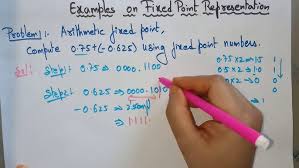 Examples on Fixed Point Representation
Problem 1:- Arithmetic fixed point,
Compute 0.75+(-0.625) using fixed point numbers.
Sol:- Step1:- 0.75 ⇒ 0000.1100
0.75×2 = 1.5 1
0.5×2 = 1.0 1
Step2:- 0.625 ⇒ 0000.1010
0×2 = 0 0
-0.625 ⇒ 2's comp
⇒ 1111.